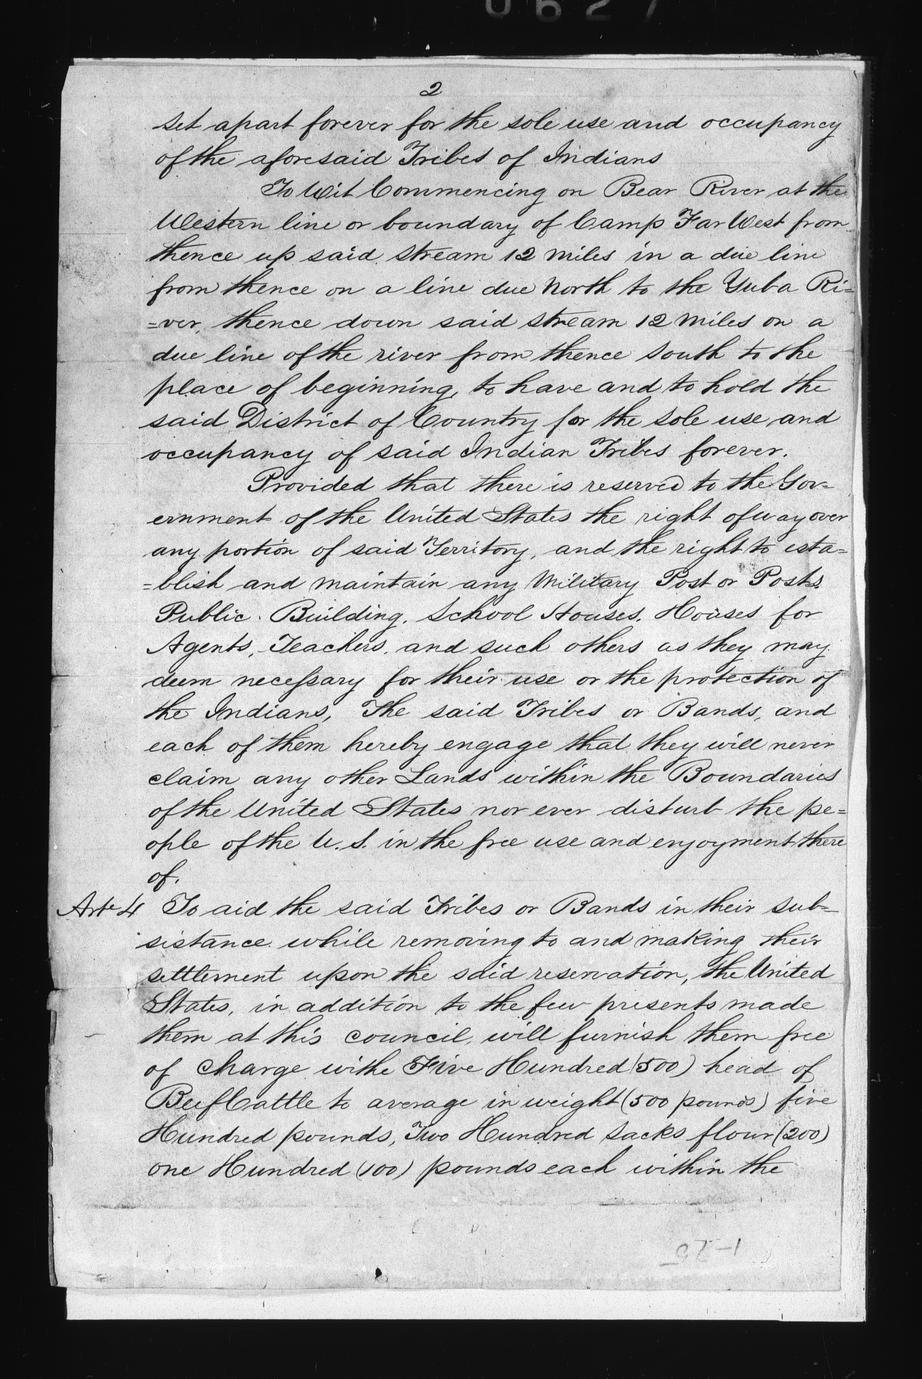 0627
2
set apart forever for the sole use and occupancy
of the aforesaid Tribes of Indians
To Wit Commencing on Bear River at the
Western line or boundary of Camp Far West from
thence up said stream 12 miles in a due line
from thence on a line due North to the Yuba Ri=
=ver, thence down said stream 12 Miles on a
due line of the river from thence South to the
place of beginning, to have and to hold the
said District of Country for the sole use and
occupancy of said Indian Tribes forever.
Provided that there is reserved to the Gov=
ernment of the United States the right of way over
any portion of said Territory, and the right to esta=
=blish and maintain any Military Post or Posts
Public Building, School Houses, Houses for
Agents, Teachers, and such others as they may
deem necessary for their use or the protection of
the Indians, The said Tribes or Bands, and
each of them hereby engage that they will never
claim any other Lands within the Boundaries
of the United States nor ever disturb the pe=
ople of the U.S. in the free use and enjoyment there
of.
Art 4 To aid the said Tribes or Bands in their sub=
sistance while removing to and making their
settlement upon the said reservation, the United
States, in addition to the few presents made
them at this council, will furnish them free
of charge withe Five Hundred (500) head of
Beef Cattle to average in weight (500 pounds) five
Hundred pounds, Two Hundred sacks flour (200)
one Hundred (100) pounds each within the